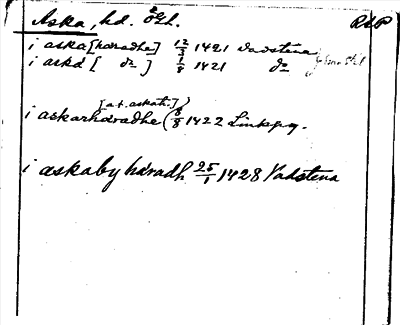 Aska, hd. Ögl. RAP
i aska [háradhe] 12/3 1421 Vadstena
i aská [ do ] 1/8 1421 do
[at. askah.]
i askarháradhe (8/8 1422 Linkpg.
i askaby háradh 25/1 1428 Vadstena